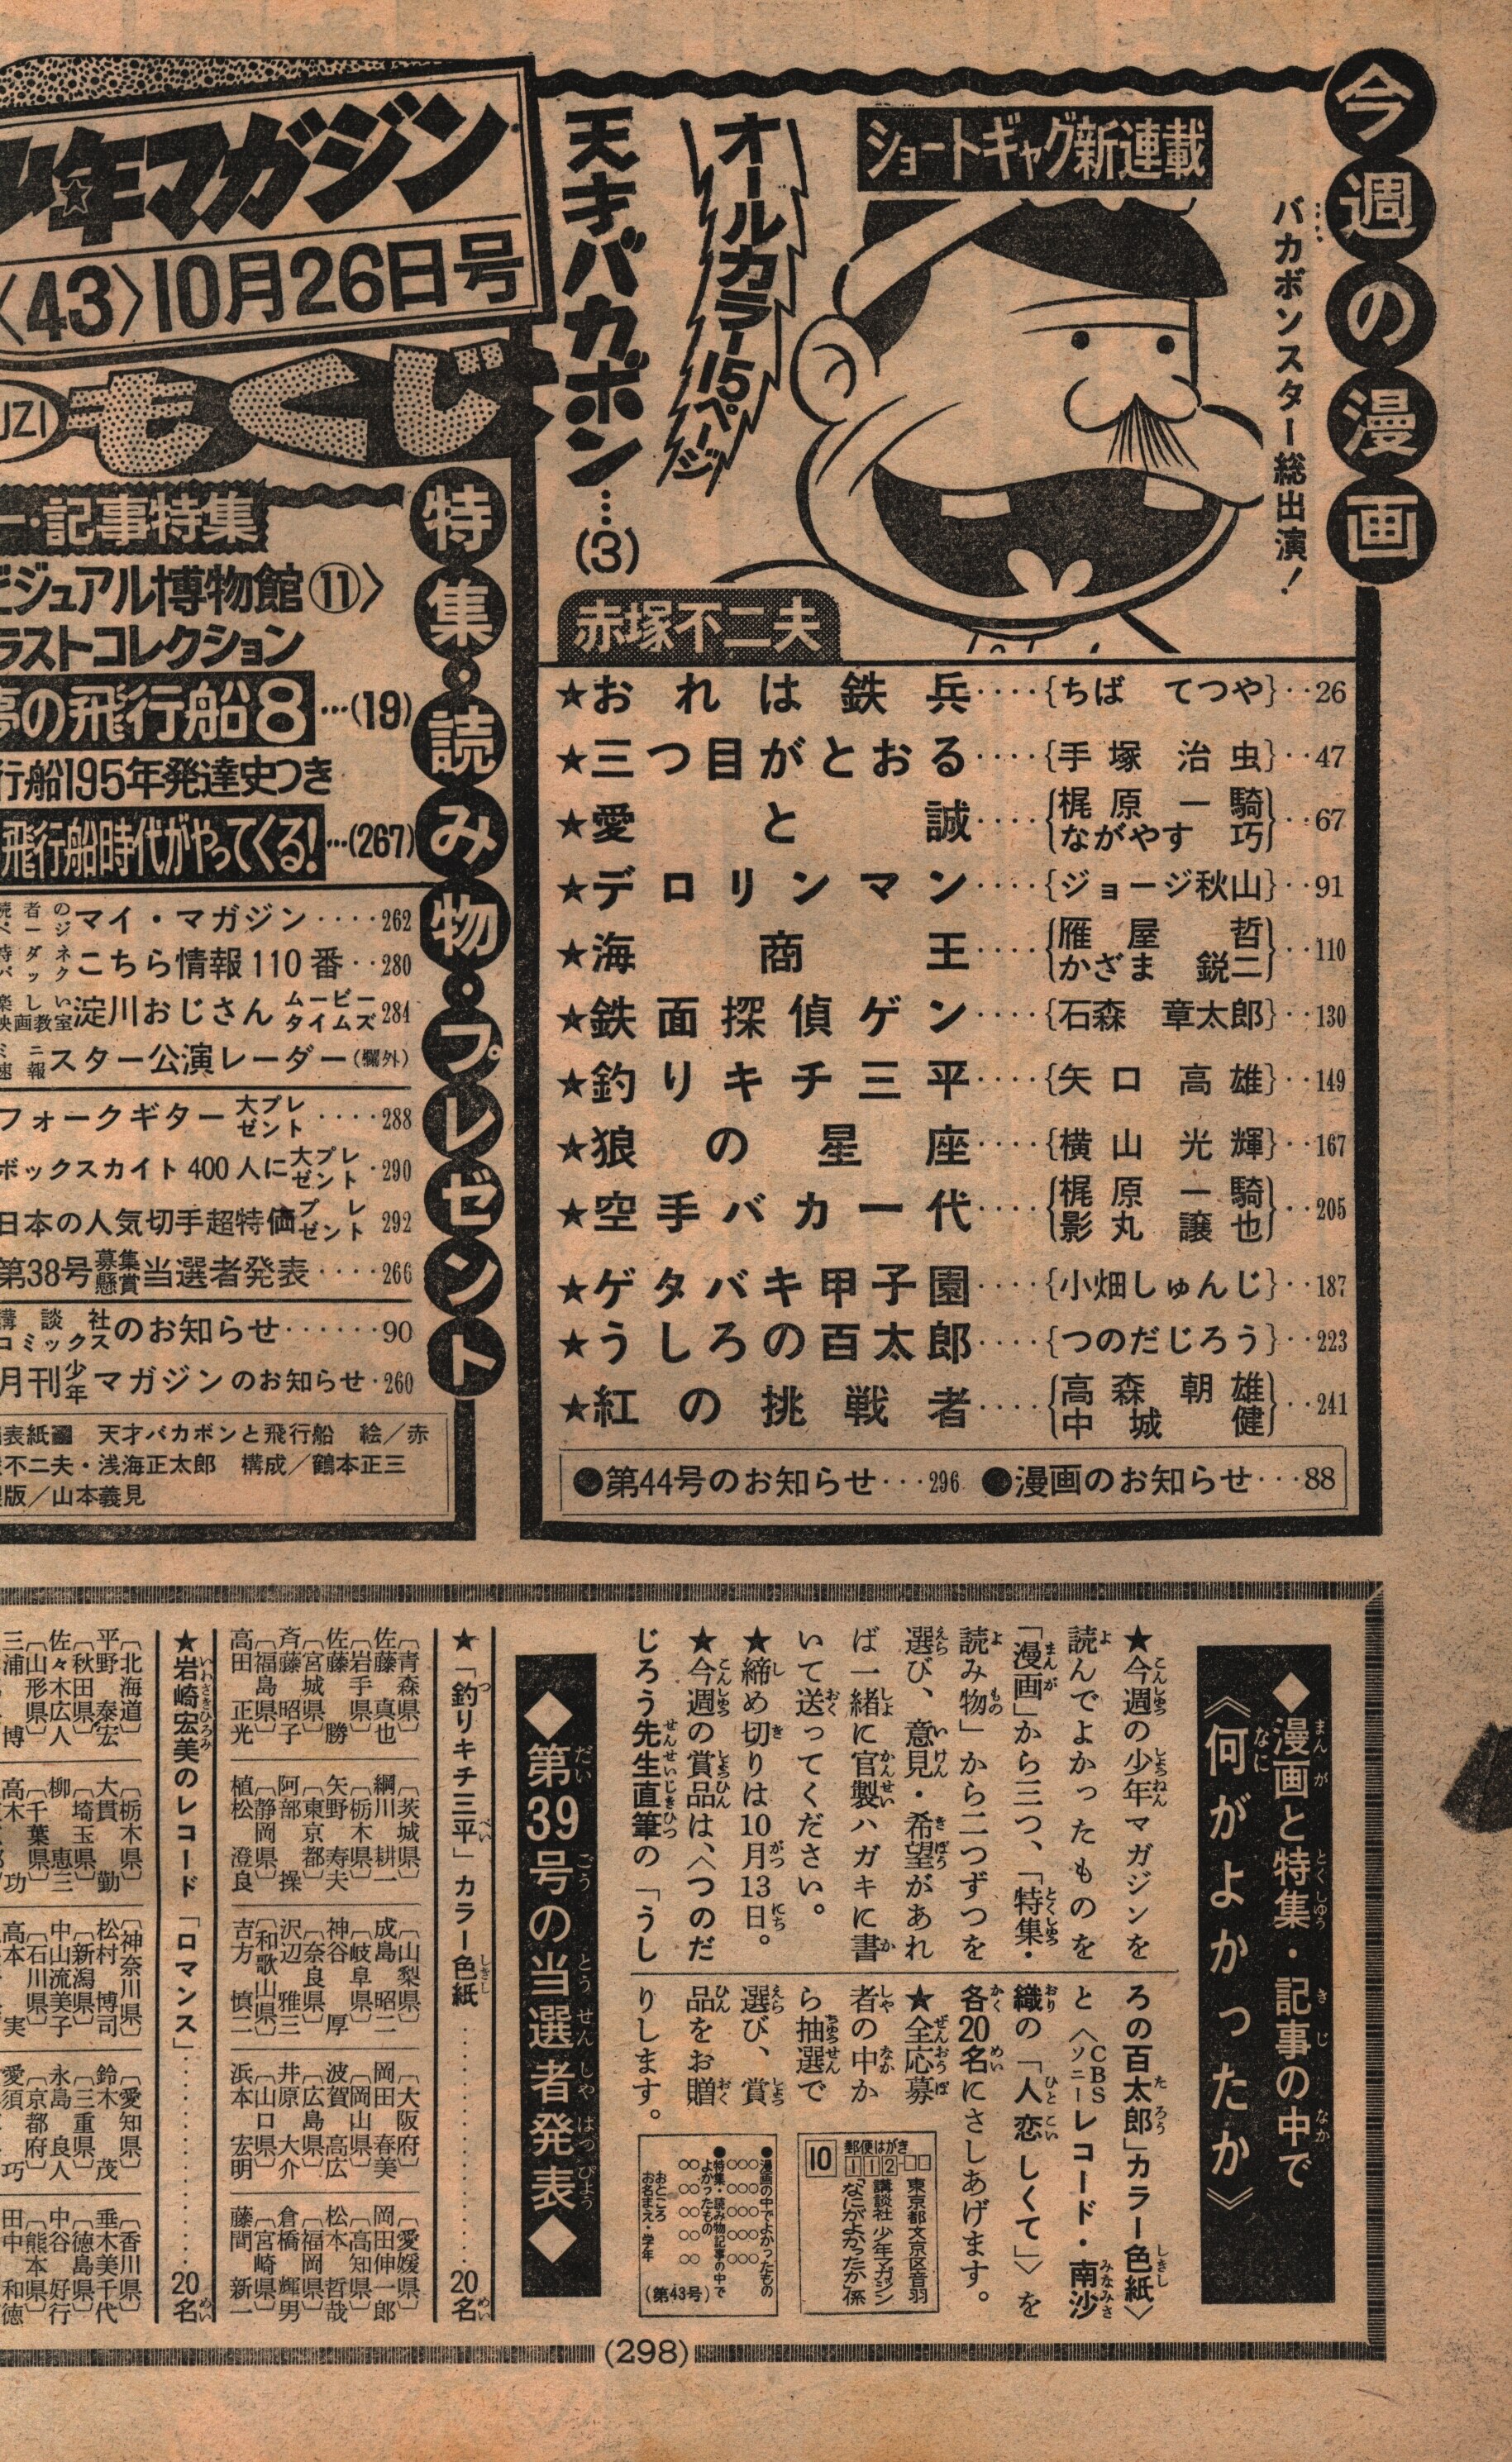 今週の漫画
バカボンスター総出演!
ショートギャグ新連載
オールカラー15ページ
天才バカボン…(3)
赤塚不二夫
★おれは鉄兵‥‥{ちば てつや}‥26
★三つ目がとおる‥‥{手塚 治虫}‥47
★愛と誠‥‥{梶原一騎 ながやす巧}‥67
★デロリンマン‥‥{ジョージ秋山}‥91
★海商王‥‥{雁屋哲 かざま鋭二}‥110
★鉄面探偵ゲン‥‥{石森 章太郎}‥130
★釣りキチ三平‥‥{矢口 高雄}‥149
★狼の星座‥‥{横山 光輝}‥167
★空手バカ一代‥‥{梶原一騎 影丸譲也}‥205
★ゲタバキ甲子園‥‥{小畑しゅんじ}‥187
★うしろの百太郎‥‥{つのだじろう}‥223
★紅の挑戦者‥‥{高森朝雄 中城健}‥241
●第44号のお知らせ…296 ●漫画のお知らせ…88
少年マガジン
〈43〉10月26日号
もくじ
特集・読み物・プレゼント
ー・記事特集
ビジュアル博物館⑪〉
ラストコレクション
夢の飛行船8…(19)
行船195年発達史つき
飛行船時代がやってくる!…(267)
読者のページ マイ・マガジン‥‥262
特ダネパック こちら情報110番‥280
楽しい映画教室 淀川おじさん ムービータイムズ 284
ミニ速報 スター公演レーダー(欄外)
フォークギター大プレゼント‥‥288
ボックスカイト400人に大プレゼント・290
日本の人気切手超特価プレゼント 292
第38号募集懸賞当選者発表‥‥266
講談社コミックスのお知らせ‥‥‥90
月刊少年マガジンのお知らせ・260
表紙 天才バカボンと飛行船 絵/赤
不二夫・浅海正太郎 構成/鶴本正三
版/山本義見
◆漫画と特集・記事の中で
《何がよかったか》
★今週の少年マガジンを
読んでよかったものを
「漫画」から三つ、「特集・
読み物」から二つずつを
選び、意見・希望があれ
ば一緒に官製ハガキに書
いて送ってください。
★締め切りは10月13日。
★今週の賞品は、〈つのだ
じろう先生直筆の「うし
ろの百太郎」カラー色紙〉
と〈CBSソニーレコード・南沙
織の「人恋しくて」〉を
各20名にさしあげます。
★全応募
者の中か
ら抽選で
選び、賞
品をお贈
りします。
郵便はがき
112
10
東京都文京区音羽
講談社 少年マガジン
「なにがよかったか」係
●漫画の中でよかったもの
○○○ ○○○ ○○○
●特集・読み物記事の中で
よかったもの
○○○○ ○○○○
おところ
お名まえ・学年
(第43号)
◆第39号の当選者発表◆
★「釣りキチ三平」カラー色紙‥‥‥‥20名
〔青森県〕
佐藤真也
〔岩手県〕
佐藤勝
〔宮城県〕
斉藤昭子
〔福島県〕
高田正光
〔茨城県〕
綱川耕一
〔栃木県〕
矢野寿夫
〔東京都〕
阿部操
〔静岡県〕
植松澄良
〔山梨県〕
成島昭二
〔岐阜県〕
神谷厚
〔奈良県〕
沢辺雅三
〔和歌山県〕
吉方慎二
〔大阪府〕
岡田春美
〔岡山県〕
波賀高広
〔広島県〕
井原大介
〔山口県〕
浜本宏明
〔愛媛県〕
岡田伸一郎
〔高知県〕
松本哲哉
〔福岡県〕
倉橋輝男
〔宮崎県〕
藤間新一
★岩崎宏美のレコード「ロマンス」‥‥‥‥20名
〔北海道〕
平野泰宏
〔秋田県〕
佐々木広人
〔山形県〕
三浦博
〔栃木県〕
大貫勤
〔埼玉県〕
柳恵三
〔千葉県〕
高木功
〔神奈川県〕
松村博司
〔新潟県〕
中山流美子
〔石川県〕
高本実
〔愛知県〕
鈴木茂
〔三重県〕
永島良人
〔京都府〕
愛須巧
〔香川県〕
垂木美千代
〔徳島県〕
中谷好行
〔熊本県〕
田中和徳
(298)